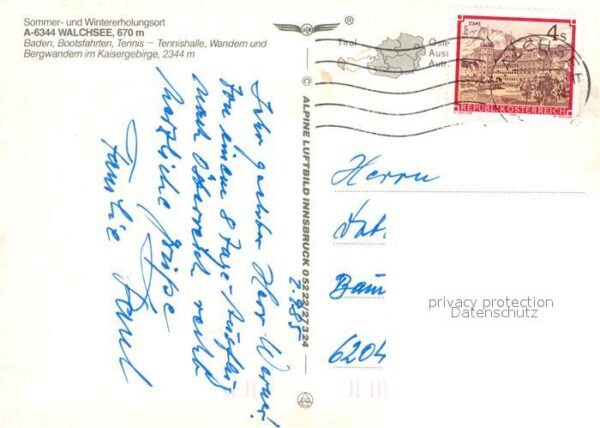 Sommer- und Wintererholungsort
A-6344 WALCHSEE, 670 m
Baden, Bootsfahrten, Tennis – Tennishalle, Wandern und
Bergwandern im Kaisergebirge, 2344 m
Tirol
Öste
Aust
Autr.
STIFT STAMS
4s
REPUBLIK ÖSTERREICH
WALCHSEE
© ALPINE LUFTBILD INNSBRUCK 05222/27324
2.9.85
Sehr geehrter Herr Werner!
Von einem 8 Tage-Ausflug
nach Österreich recht
herzliche Grüße
Familie
Herrn
6204
privacy protection
Datenschutz